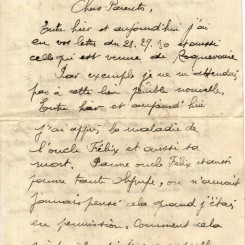 Chers Parents,
Entre hier et aujourd'hui j'ai
eu vos lettres du 28, 29, 30 et aussi
celle qui est venue de Roquevaire
Par exemple je ne m'attendais
pas à cette loi pénible nouvelle,
Entre hier et aujourd'hui
j'ai appris la maladie de
l'oncle Félix et aussi sa
mort. Pauvre oncle Félix et aussi
pauvre tante, on n'aurait
jamais pensé cela quand j'étais
en permission. Comment cela